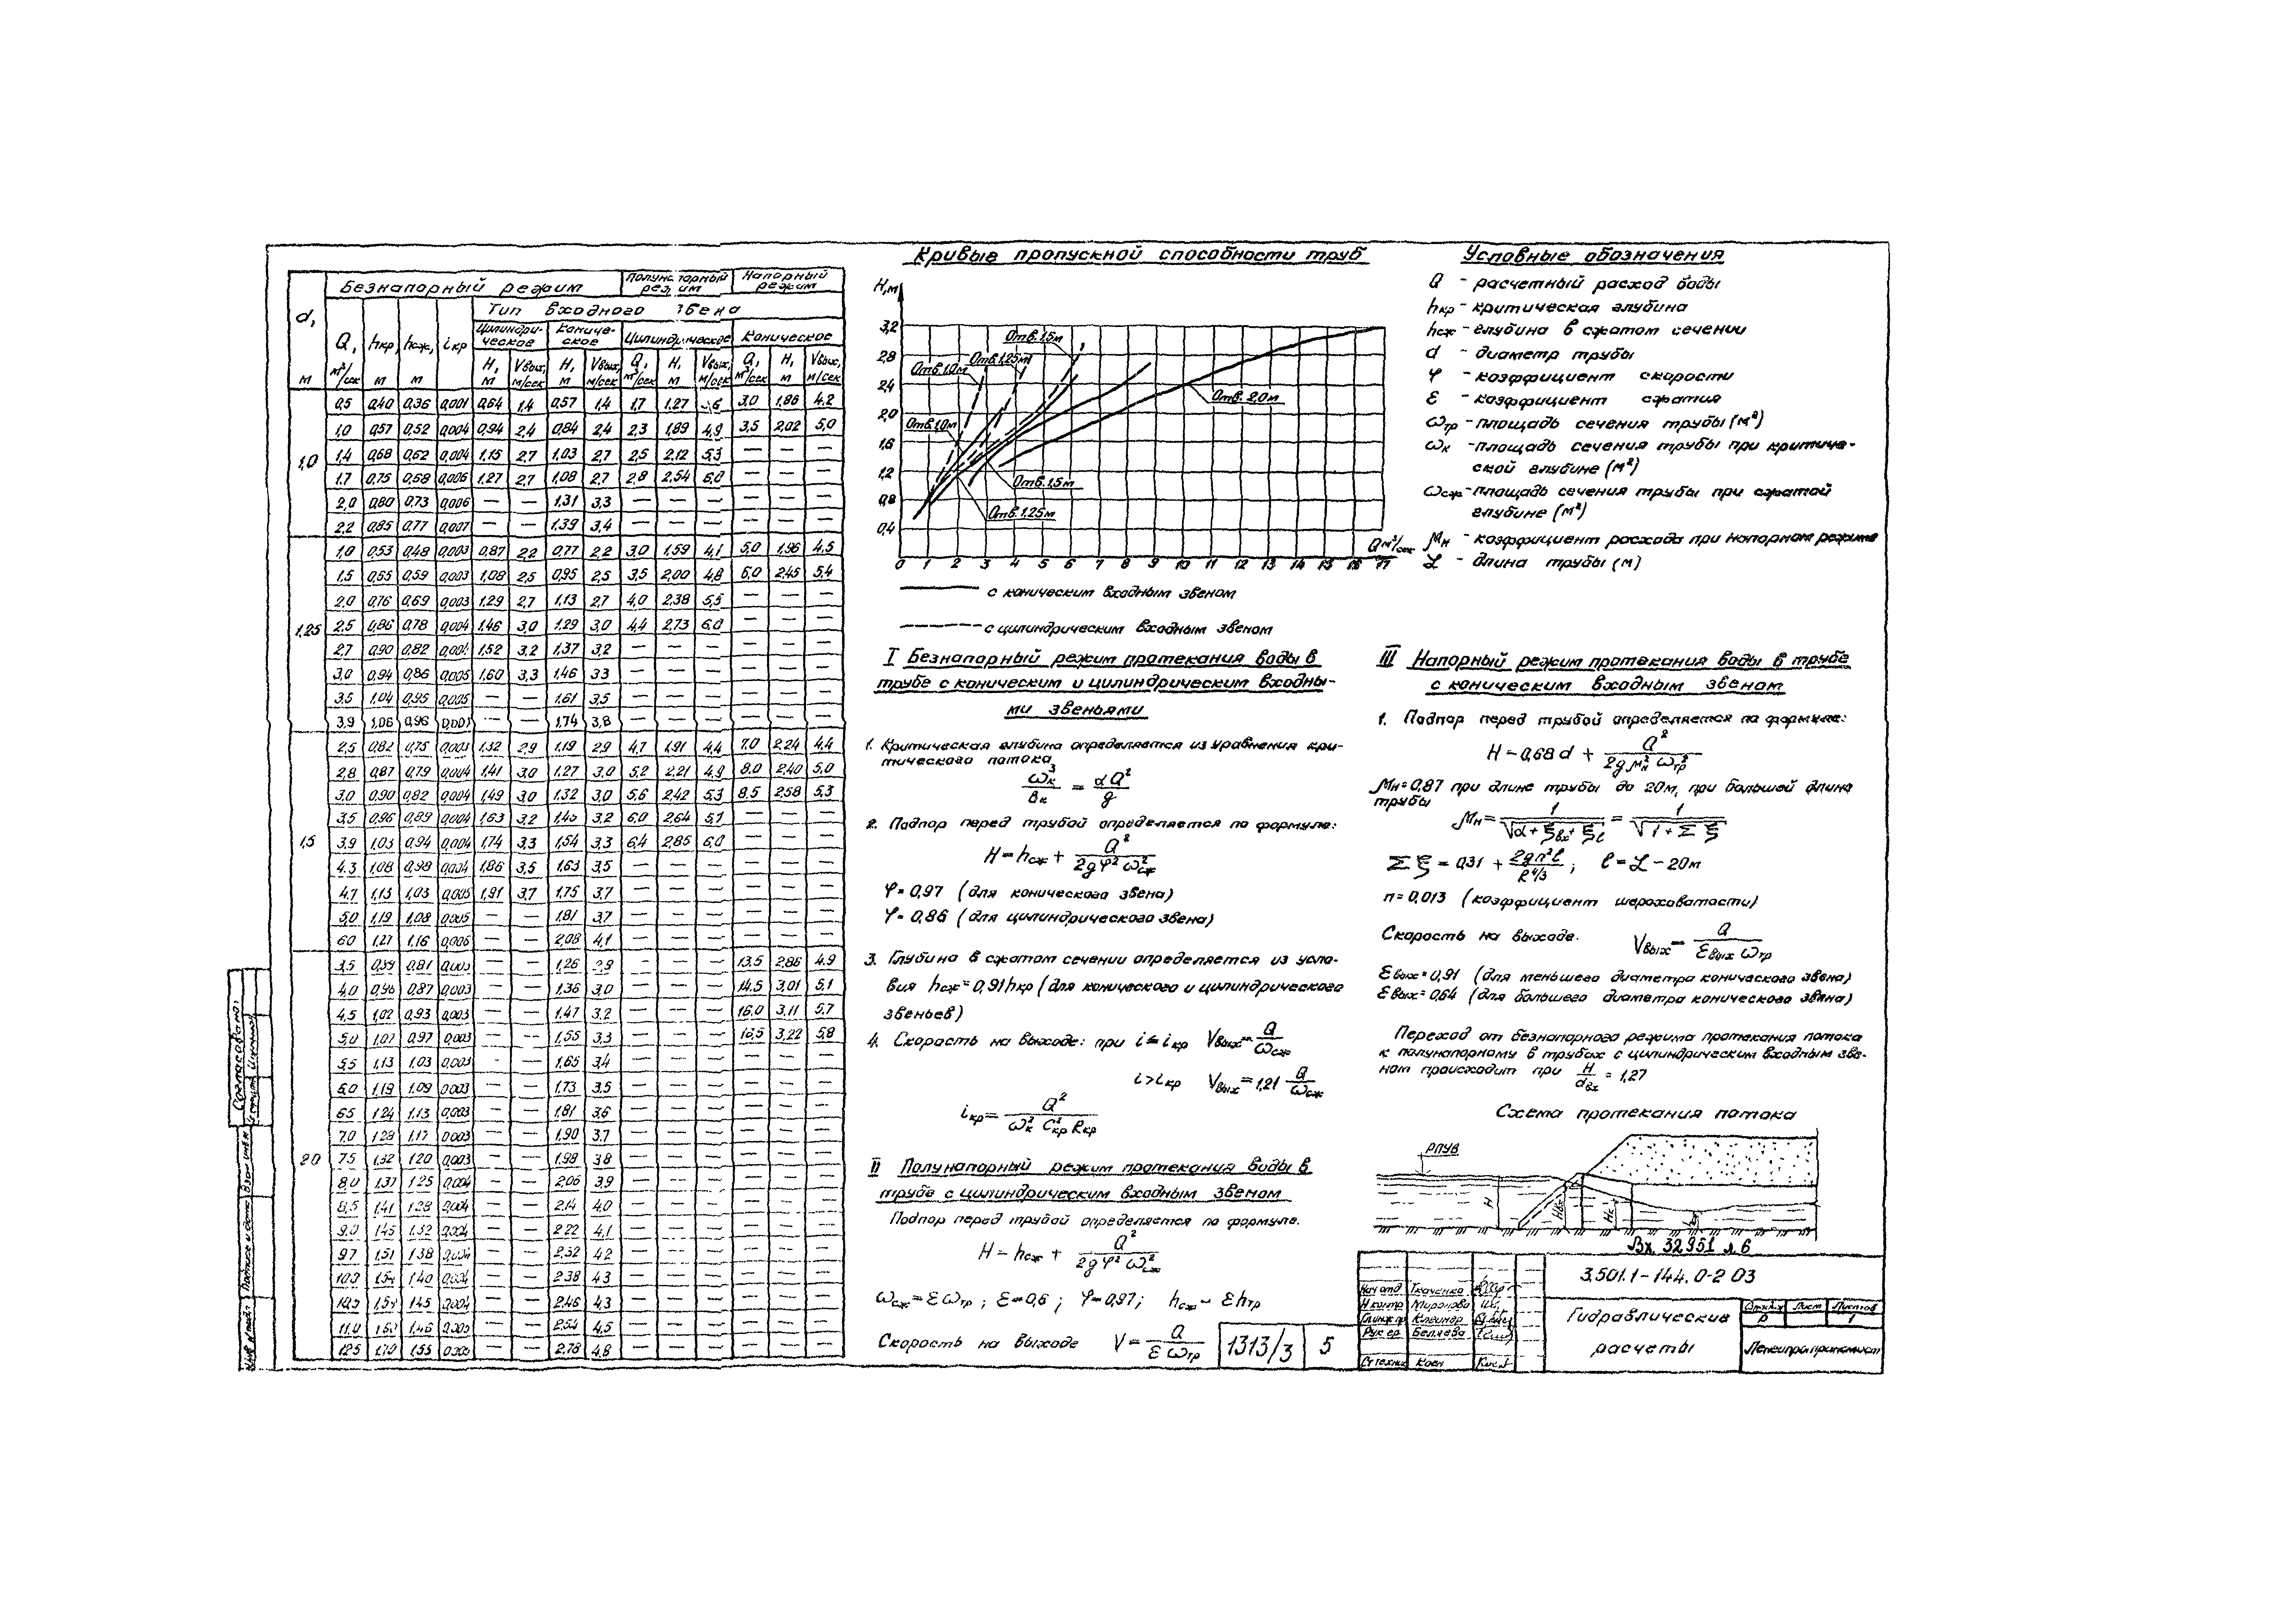 Безнапорный режим
Полунапорный режим
Напорный режим
Тип входного звена
d, м
Q, м³/сек
hкр, м
hсж, м
iкр
Цилиндрическое
Коническое
Цилиндрическое
Коническое
H, м Vвых, м/сек H, м Vвых, м/сек Q, м³/сек H, м Vвых, м/сек Q, м³/сек H, м Vвых, м/сек
1,0
0,5 0,40 0,36 0,001 0,64 1,4 0,57 1,4 1,7 1,27 3,0 1,86 4,2
1,0 0,57 0,52 0,004 0,94 2,4 0,84 2,4 2,3 1,89 4,9 3,5 2,02 5,0
1,4 0,68 0,62 0,004 1,15 2,7 1,03 2,7 2,5 2,12 5,3 — — —
1,7 0,75 0,68 0,005 1,27 2,7 1,08 2,7 2,8 2,54 6,0 — — —
2,0 0,80 0,73 0,006 — — 1,31 3,3 — — — — — —
2,2 0,85 0,77 0,007 — — 1,39 3,4 — — — — — —
1,25
1,0 0,53 0,48 0,003 0,87 2,2 0,77 2,2 3,0 1,59 4,1 5,0 1,96 4,5
1,5 0,65 0,59 0,003 1,08 2,5 0,95 2,5 3,5 2,00 4,8 6,0 2,45 5,4
2,0 0,76 0,69 0,003 1,29 2,7 1,13 2,7 4,0 2,38 5,5 — — —
2,5 0,86 0,78 0,004 1,46 3,0 1,29 3,0 4,4 2,73 6,0 — — —
2,7 0,90 0,82 1,52 3,2 1,37 3,2 — — — — — —
3,0 0,94 0,86 0,005 1,60 3,3 1,46 3,3 — — — — — —
3,5 1,04 0,95 0,005 — — 1,61 3,5 — — — — — —
3,9 1,06 0,96 — — 1,74 3,8 — — — — — —
1,5
2,5 0,82 0,75 0,003 1,32 2,9 1,19 2,9 4,7 1,91 4,4 7,0 2,24 4,4
2,8 0,87 0,79 0,004 1,41 3,0 1,27 3,0 5,2 2,21 4,9 8,0 2,40 5,0
3,0 0,90 0,82 0,004 1,49 3,0 1,32 3,0 5,6 2,42 5,3 8,5 2,58 5,3
3,5 0,96 0,89 0,004 1,63 3,2 1,45 3,2 6,0 2,64 5,7 — — —
3,9 1,03 0,94 0,004 1,74 3,3 1,54 3,3 6,4 2,85 6,0 — — —
4,3 1,08 0,98 0,004 1,86 3,5 1,63 3,5 — — — — — —
4,7 1,13 1,03 0,005 1,91 3,7 1,75 3,7 — — — — — —
5,0 1,19 1,08 0,005 — — 1,81 3,7 — — — — — —
6,0 1,27 1,16 0,006 — — 2,08 4,1 — — — — — —
2,0
3,5 0,89 0,81 0,003 — — 1,26 2,9 — — — 13,5 2,86 4,9
4,0 0,96 0,87 0,003 — — 1,36 3,0 — — — 14,5 3,01 5,1
4,5 1,02 0,93 0,003 — — 1,47 3,2 — — — 16,0 3,11 5,7
5,0 1,07 0,97 0,003 — — 1,55 3,3 — — — 16,5 3,22 5,8
5,5 1,13 1,03 0,003 — — 1,65 3,4 — — — — — —
6,0 1,19 1,09 0,003 — — 1,73 3,5 — — — — — —
6,5 1,24 1,13 0,003 — — 1,81 3,6 — — — — — —
7,0 1,28 1,17 0,003 — — 1,90 3,7 — — — — — —
7,5 1,32 1,20 0,003 — — 1,98 3,8 — — — — — —
8,0 1,37 1,25 0,004 — — 2,06 3,9 — — — — — —
8,5 1,41 1,28 0,004 — — 2,14 4,0 — — — — — —
9,0 1,45 1,32 0,004 — — 2,22 4,1 — — — — — —
9,7 1,51 1,38 0,004 — — 2,32 4,2 — — — — — —
10,0 1,54 1,40 0,004 — — 2,38 4,3 — — — — — —
10,5 1,45 0,004 — — 2,46 4,3 — — — — — —
11,0 1,46 0,005 — — 2,54 4,5 — — — — — —
12,5 1,70 1,55 0,005 — — 2,78 4,8 — — — — — —
Кривые пропускной способности труб
H,м
3,2
2,8
2,4
2,0
1,6
1,2
0,8
0,4
0 1 2 3 4 5 6 7 8 9 10 11 12 13 14 15 16 17
Q м³/сек
Отв.1,5м
Отв.1,25м
Отв.1,0м
Отв. 2,0м
Отв.1,0м
Отв.1,5м
Отв.1,25м
с коническим входным звеном
с цилиндрическим входным звеном
I Безнапорный режим протекания воды в
трубе с коническим и цилиндрическим входны-
ми звеньями
1. Критическая глубина определяется из уравнения кри-
тического потока
ωк³/Вк = αQ²/g
2. Подпор перед трубой определяется по формуле:
H = hсж + Q²/(2gφ²ω²сж)
φ = 0,97 (для конического звена)
φ = 0,86 (для цилиндрического звена)
3. Глубина в сжатом сечении определяется из усло-
вия hсж = 0,91hкр (для конического и цилиндрического
звеньев)
4. Скорость на выходе: при i ≤ iкр Vвых = Q/ωсж
i > iкр Vвых = 1,21 Q/ωсж
iкр = Q²/(ω²к C²кр Rкр)
II Полунапорный режим протекания воды в
трубе с цилиндрическим входным звеном
Подпор перед трубой определяется по формуле.
H = hсж + Q²/(2gφ²ω²сж)
ωсж = εωтр ; ε = 0,6 ; φ = 0,97; hсж = εhтр
Скорость на выходе V = Q/(εωтр)
1313/3 5
Условные обозначения
Q - расчетный расход воды
hкр - критическая глубина
hсж - глубина в сжатом сечении
d - диаметр трубы
φ - коэффициент скорости
ε - коэффициент сжатия
ωтр - площадь сечения трубы (м²)
ωк - площадь сечения трубы при критиче-
ской глубине (м²)
ωсж - площадь сечения трубы при сжатой
глубине (м²)
μн - коэффициент расхода при напорном режиме
L - длина трубы (м)
III Напорный режим протекания воды в трубе
с коническим входным звеном
1. Подпор перед трубой определяется по формуле:
H = 0,68d + Q²/(2gμ²н ω²тр)
μн = 0,87 при длине трубы до 20м, при большей длине
трубы
μн = 1/√(α + ξвх + ξl) = 1/√(1 + Σξ)
Σξ = 0,31 + 2gn²l/R^4/3 ; l = L - 20м
n = 0,013 (коэффициент шероховатости)
Скорость на выходе. Vвых = Q/(εвых ωтр)
εвых = 0,91 (для меньшего диаметра конического звена)
εвых = 0,64 (для большего диаметра конического звена)
Переход от безнапорного режима протекания потока
к полунапорному в трубах с цилиндрическим входным зве-
ном происходит при H/dвх = 1,27
Схема протекания потока
РПУВ
H
Вх. 32951 л.6
3.501.1-144.0-2 03
Нач отд Ткаченко
Н.контр Миронова
Гл.инж.пр Клейнер
Рук гр Беляева
Ст техник Коен
Гидравлические
расчеты
Стадия Лист Листов
Р 1
Ленгипротрансмост
Согласовано:
Взам инв №
Подпись и дата
Инв № подл